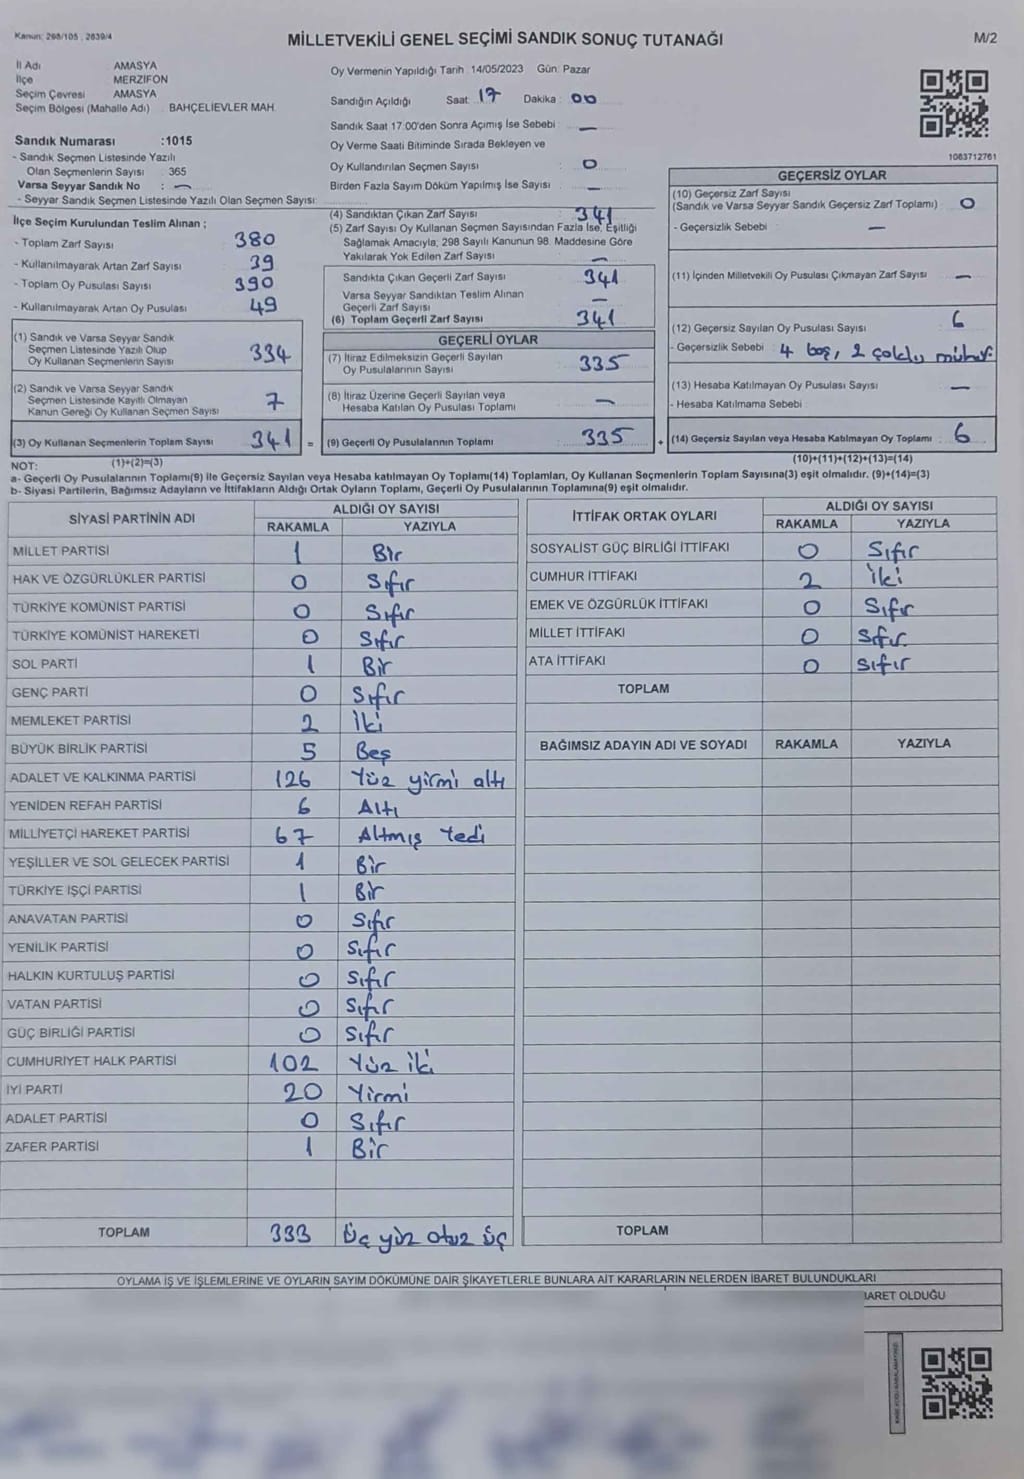 Kanun: 298/105 ; 2839/4
MİLLETVEKİLİ GENEL SEÇİMİ SANDIK SONUÇ TUTANAĞI
M/2
İl Adı AMASYA
İlçe MERZİFON
Seçim Çevresi AMASYA
Seçim Bölgesi (Mahalle Adı) BAHÇELİEVLER MAH.
Sandık Numarası :1015
- Sandık Seçmen Listesinde Yazılı
Olan Seçmenlerin Sayısı 365
Varsa Seyyar Sandık No : —
- Seyyar Sandık Seçmen Listesinde Yazılı Olan Seçmen Sayısı:
Oy Vermenin Yapıldığı Tarih 14/05/2023 Gün: Pazar
Sandığın Açıldığı Saat 17 Dakika : 00
Sandık Saat 17:00'den Sonra Açımış İse Sebebi : —
Oy Verme Saati Bitiminde Sırada Bekleyen ve
Oy Kullandırılan Seçmen Sayısı : 0
Birden Fazla Sayım Döküm Yapılmış İse Sayısı : —
1063712761
İlçe Seçim Kurulundan Teslim Alınan ;
- Toplam Zarf Sayısı 380
- Kullanılmayarak Artan Zarf Sayısı 39
- Toplam Oy Pusulası Sayısı 390
- Kullanılmayarak Artan Oy Pusulası 49
(1) Sandık ve Varsa Seyyar Sandık
Seçmen Listesinde Yazılı Olup
Oy Kullanan Seçmenlerin Sayısı 334
(2) Sandık ve Varsa Seyyar Sandık
Seçmen Listesinde Kayıtlı Olmayan
Kanun Gereği Oy Kullanan Seçmen Sayısı 7
(3) Oy Kullanan Seçmenlerin Toplam Sayısı 341 =
(1)+(2)=(3)
(4) Sandıktan Çıkan Zarf Sayısı : 341
(5) Zarf Sayısı Oy Kullanan Seçmen Sayısından Fazla İse, Eşitliği
Sağlamak Amacıyla, 298 Sayılı Kanunun 98. Maddesine Göre
Yakılarak Yok Edilen Zarf Sayısı : —
Sandıkta Çıkan Geçerli Zarf Sayısı : 341
Varsa Seyyar Sandıktan Teslim Alınan
Geçerli Zarf Sayısı : —
(6) Toplam Geçerli Zarf Sayısı : 341
GEÇERLİ OYLAR
(7) İtiraz Edilmeksizin Geçerli Sayılan
Oy Pusulalarının Sayısı : 335
(8) İtiraz Üzerine Geçerli Sayılan veya
Hesaba Katılan Oy Pusulası Toplamı : —
(9) Geçerli Oy Pusulalarının Toplamı : 335 +
GEÇERSİZ OYLAR
(10) Geçersiz Zarf Sayısı
(Sandık ve Varsa Seyyar Sandık Geçersiz Zarf Toplamı) : 0
- Geçersizlik Sebebi : —
(11) İçinden Milletvekili Oy Pusulası Çıkmayan Zarf Sayısı : —
(12) Geçersiz Sayılan Oy Pusulası Sayısı : 6
- Geçersizlik Sebebi : 4 boş, 2 çoklu mühür.
(13) Hesaba Katılmayan Oy Pusulası Sayısı : —
- Hesaba Katılmama Sebebi :
(14) Geçersiz Sayılan veya Hesaba Katılmayan Oy Toplamı : 6
(10)+(11)+(12)+(13)=(14)
NOT:
a- Geçerli Oy Pusulalarının Toplamı(9) ile Geçersiz Sayılan veya Hesaba katılmayan Oy Toplamı(14) Toplamları, Oy Kullanan Seçmenlerin Toplam Sayısına(3) eşit olmalıdır. (9)+(14)=(3)
b- Siyasi Partilerin, Bağımsız Adayların ve İttifakların Aldığı Ortak Oyların Toplamı, Geçerli Oy Pusulalarının Toplamına(9) eşit olmalıdır.
SİYASİ PARTİNİN ADI ALDIĞI OY SAYISI
RAKAMLA YAZIYLA
MİLLET PARTİSİ 1 Bir
HAK VE ÖZGÜRLÜKLER PARTİSİ 0 Sıfır
TÜRKİYE KOMÜNİST PARTİSİ 0 Sıfır
TÜRKİYE KOMÜNİST HAREKETİ 0 Sıfır
SOL PARTİ 1 Bir
GENÇ PARTİ 0 Sıfır
MEMLEKET PARTİSİ 2 İki
BÜYÜK BİRLİK PARTİSİ 5 Beş
ADALET VE KALKINMA PARTİSİ 126 Yüz yirmi altı
YENİDEN REFAH PARTİSİ 6 Altı
MİLLİYETÇİ HAREKET PARTİSİ 67 Altmış Yedi
YEŞİLLER VE SOL GELECEK PARTİSİ 1 Bir
TÜRKİYE İŞÇİ PARTİSİ 1 Bir
ANAVATAN PARTİSİ 0 Sıfır
YENİLİK PARTİSİ 0 Sıfır
HALKIN KURTULUŞ PARTİSİ 0 Sıfır
VATAN PARTİSİ 0 Sıfır
GÜÇ BİRLİĞİ PARTİSİ 0 Sıfır
CUMHURİYET HALK PARTİSİ 102 Yüz iki
İYİ PARTİ 20 Yirmi
ADALET PARTİSİ 0 Sıfır
ZAFER PARTİSİ 1 Bir
TOPLAM 333 Üç yüz otuz üç
İTTİFAK ORTAK OYLARI ALDIĞI OY SAYISI
RAKAMLA YAZIYLA
SOSYALİST GÜÇ BİRLİĞİ İTTİFAKI 0 Sıfır
CUMHUR İTTİFAKI 2 İki
EMEK VE ÖZGÜRLÜK İTTİFAKI 0 Sıfır
MİLLET İTTİFAKI 0 Sıfır
ATA İTTİFAKI 0 Sıfır
TOPLAM
BAĞIMSIZ ADAYIN ADI VE SOYADI RAKAMLA YAZIYLA
TOPLAM
OYLAMA İŞ VE İŞLEMLERİNE VE OYLARIN SAYIM DÖKÜMÜNE DAİR ŞİKAYETLERLE BUNLARA AİT KARARLARIN NELERDEN İBARET BULUNDUKLARI
OLDUĞU